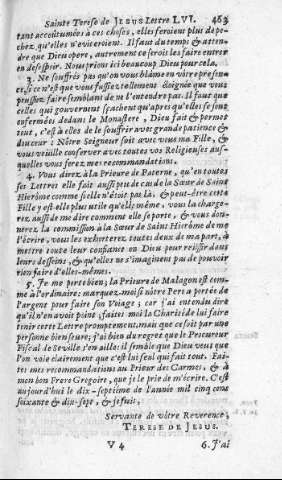 Sainte Terese de JESUS Lettre LVI. 463
tant accoûtumées à ces choses, elles feroient plus de-
chez qu'elles n'eviteroient. Il faut du temps & atten-
dre que Dieu opere, autrement ce seroit les faire entrer
en desespoir. Nous prions ici beaucoup Dieu pour cela.
3. Ne souffrés pas qu'on vous blâme en vôtre presen-
ce, si ce n'est que vous fussiez tellement éloignée que vous
peussiez faire semblant de ne l'entendre pas. Il faut que
celles qui gouvernent sçachent qu'aprés qu'elles se sont
enfermées dedans le Monastere, Dieu fait & permet
tout, c'est à elles de le souffrir avec grande patience &
douceur : Nôtre Seigneur soit avec vous ma Fille, &
vous veüille conserver avec toutes vos Religieuses aus-
quelles vous ferez mes recommandations.
4. Vous direz à la Prieure de Paterne, qu'en toutes
ses Lettres elle fait aussi peu de cas de la Sœur de Saint
Hierôme comme si elle n'étoit pas là, & peut-être cette
Fille y est-elle plus utile qu'elle même, vous la charge-
rez aussi de me dire comment elle se porte, & vous don-
nerez la commission à la Sœur de Saint Hierôme de me
l'écrire, vous les exhorterez toutes deux de ma part, à
mettre toute leur confiance en Dieu pour reüssir dans
leurs desseins, & qu'elles ne s'imaginent pas de pouvoir
rien faire d'elles-mêmes.
5. Je me porte bien ; la Prieure de Malagon est com-
me à l'ordinaire : marquez-moi si nôtre Pere a porté de
l'argent pour faire son Voiage ; car j'ai entendu dire
qu'il n'en avoit point, faites moi la Charité de lui faire
tenir cette Lettre promptement, mais que ce soit par une
personne bien seure ; j'ai bien du regret que le Procureur
Fiscal de Seville s'en aille : il semble que Dieu veut que
l'on voie clairement que c'est lui seul qui fait tout. Fai-
tes mes recommandations au Prieur des Carmes, & à
mon bon Frere Gregoire, que je le prie de m'écrire. C'est
aujourd'hui le dix-septiéme de l'année mil cinq cens
soixante & dix-sept, & je suis,
Servante de vôtre Reverence,
TERESE DE JESUS.
V 4 6. J'ai